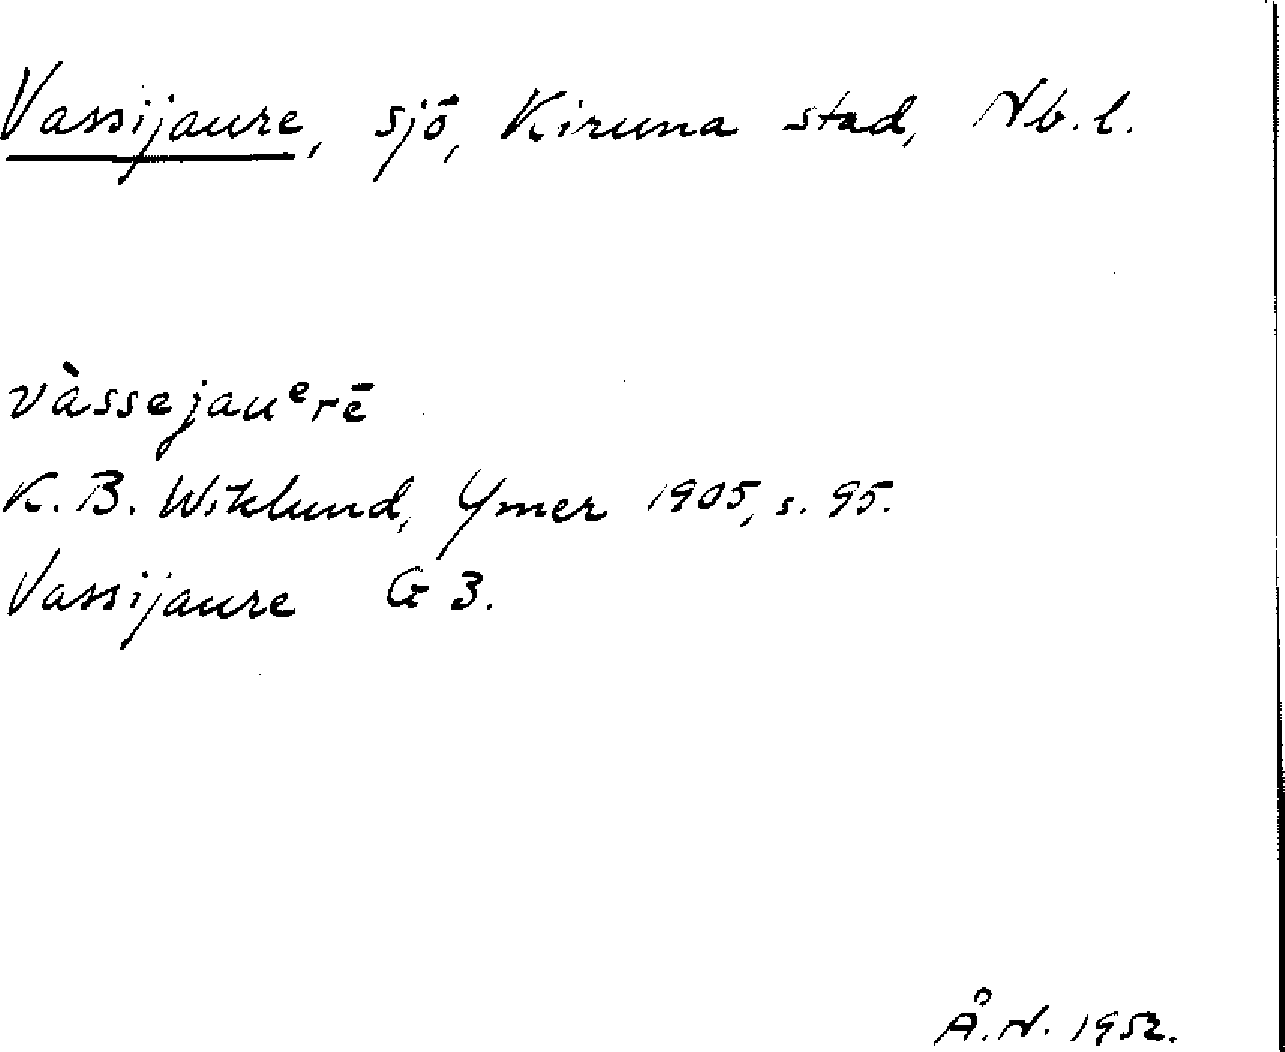 Vassijaure, sjö, Kiruna stad, Nb.l.
vàssejauᵉrē
K. B. Wiklund, Ymer 1905, s. 95.
Vassijaure G 3.
Å.N. 1952.